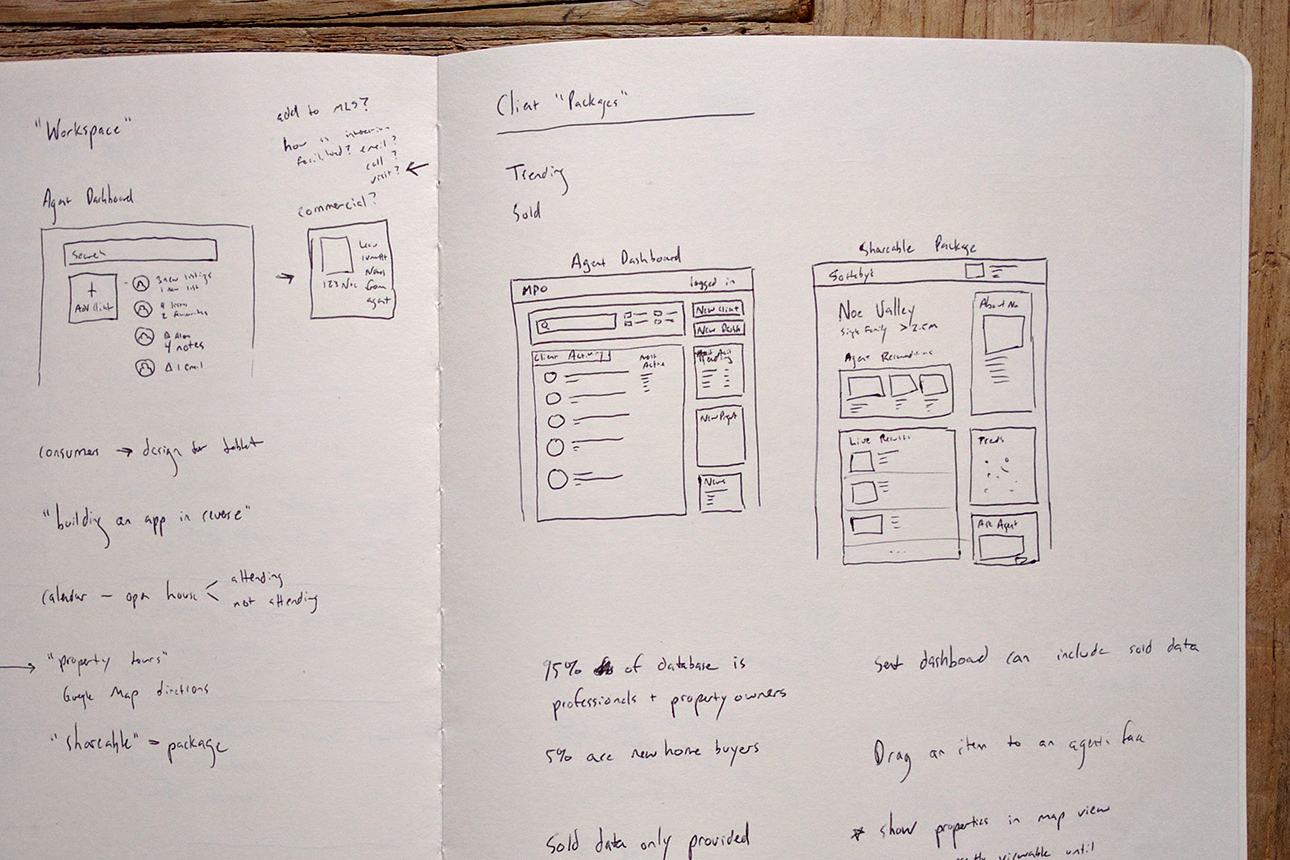 "Workspace"
add to MLS?
how is
facilitated? email?
call?
visit?
Agent Dashboard
Search
+
Add Client
3 new listings
1 new list
2 favorites
4 notes
1 email
commercial?
123 Noe
Notes
from
agent
consumers → design for tablet
"buildiy an app in reverse"
calendar — open house
attending
not attending
"property tours"
Google Map directions
"shareable" = package
Client "Packages"
Trending
Sold
Agent Dashboard
MPO
logged in
New Client
New Dash
Client Activity
Most
Active
Trending
News
Shareable Package
Sothebys
Noe Valley
Single Family > 2.5m
About Me
Agent Recommendations
Live Results
Ask Agent
95% of database is
professionals + property owners
5% are new home buyers
Sold data only provided
Sent dashboard can include sold data
Drag an item to an agents face
* show properties in map view
viewable until